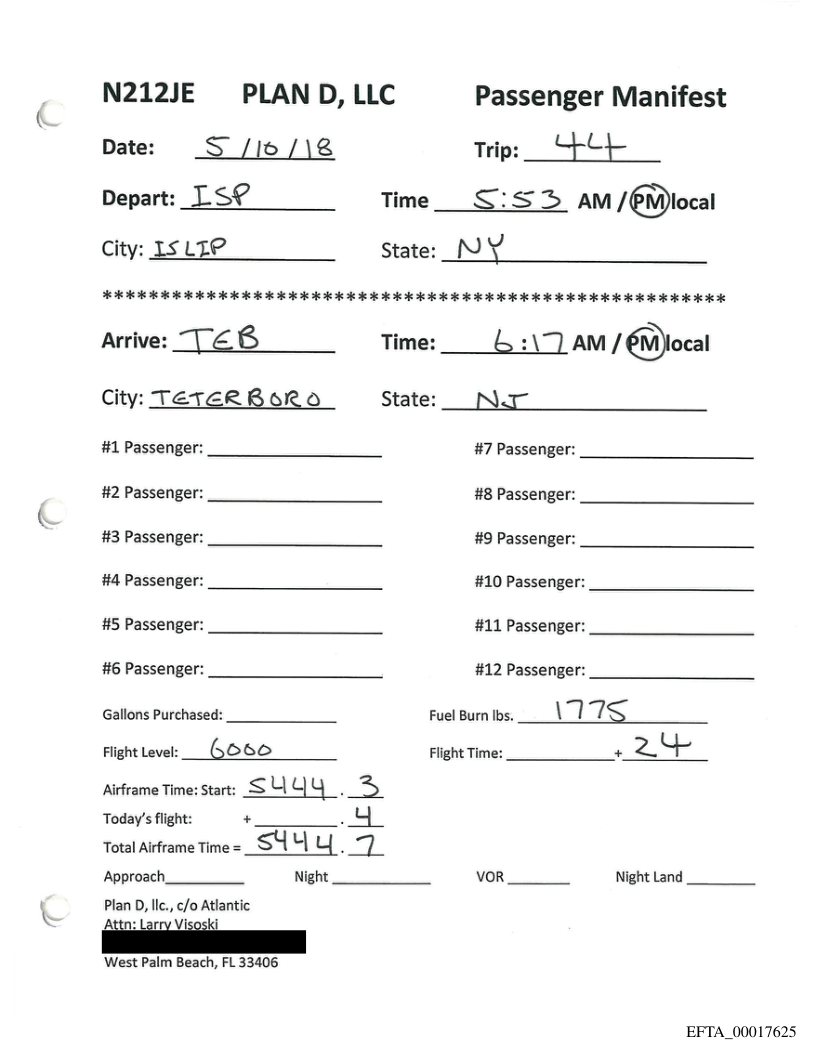 N212JE PLAN D, LLC Passenger Manifest
Date: 5/10/18 Trip: 44
Depart: ISP Time 5:53 AM / PM local
City: ISLIP State: NY
******************************************************
Arrive: TEB Time: 6:17 AM / PM local
City: TETERBORO State: NJ
#1 Passenger: #7 Passenger:
#2 Passenger: #8 Passenger:
#3 Passenger: #9 Passenger:
#4 Passenger: #10 Passenger:
#5 Passenger: #11 Passenger:
#6 Passenger: #12 Passenger:
Gallons Purchased: Fuel Burn lbs. 1775
Flight Level: 6000 Flight Time: + 24
Airframe Time: Start: 5444.3
Today's flight: + .4
Total Airframe Time = 5444.7
Approach Night VOR Night Land
Plan D, llc., c/o Atlantic
Attn: Larry Visoski
West Palm Beach, FL 33406
EFTA_00017625